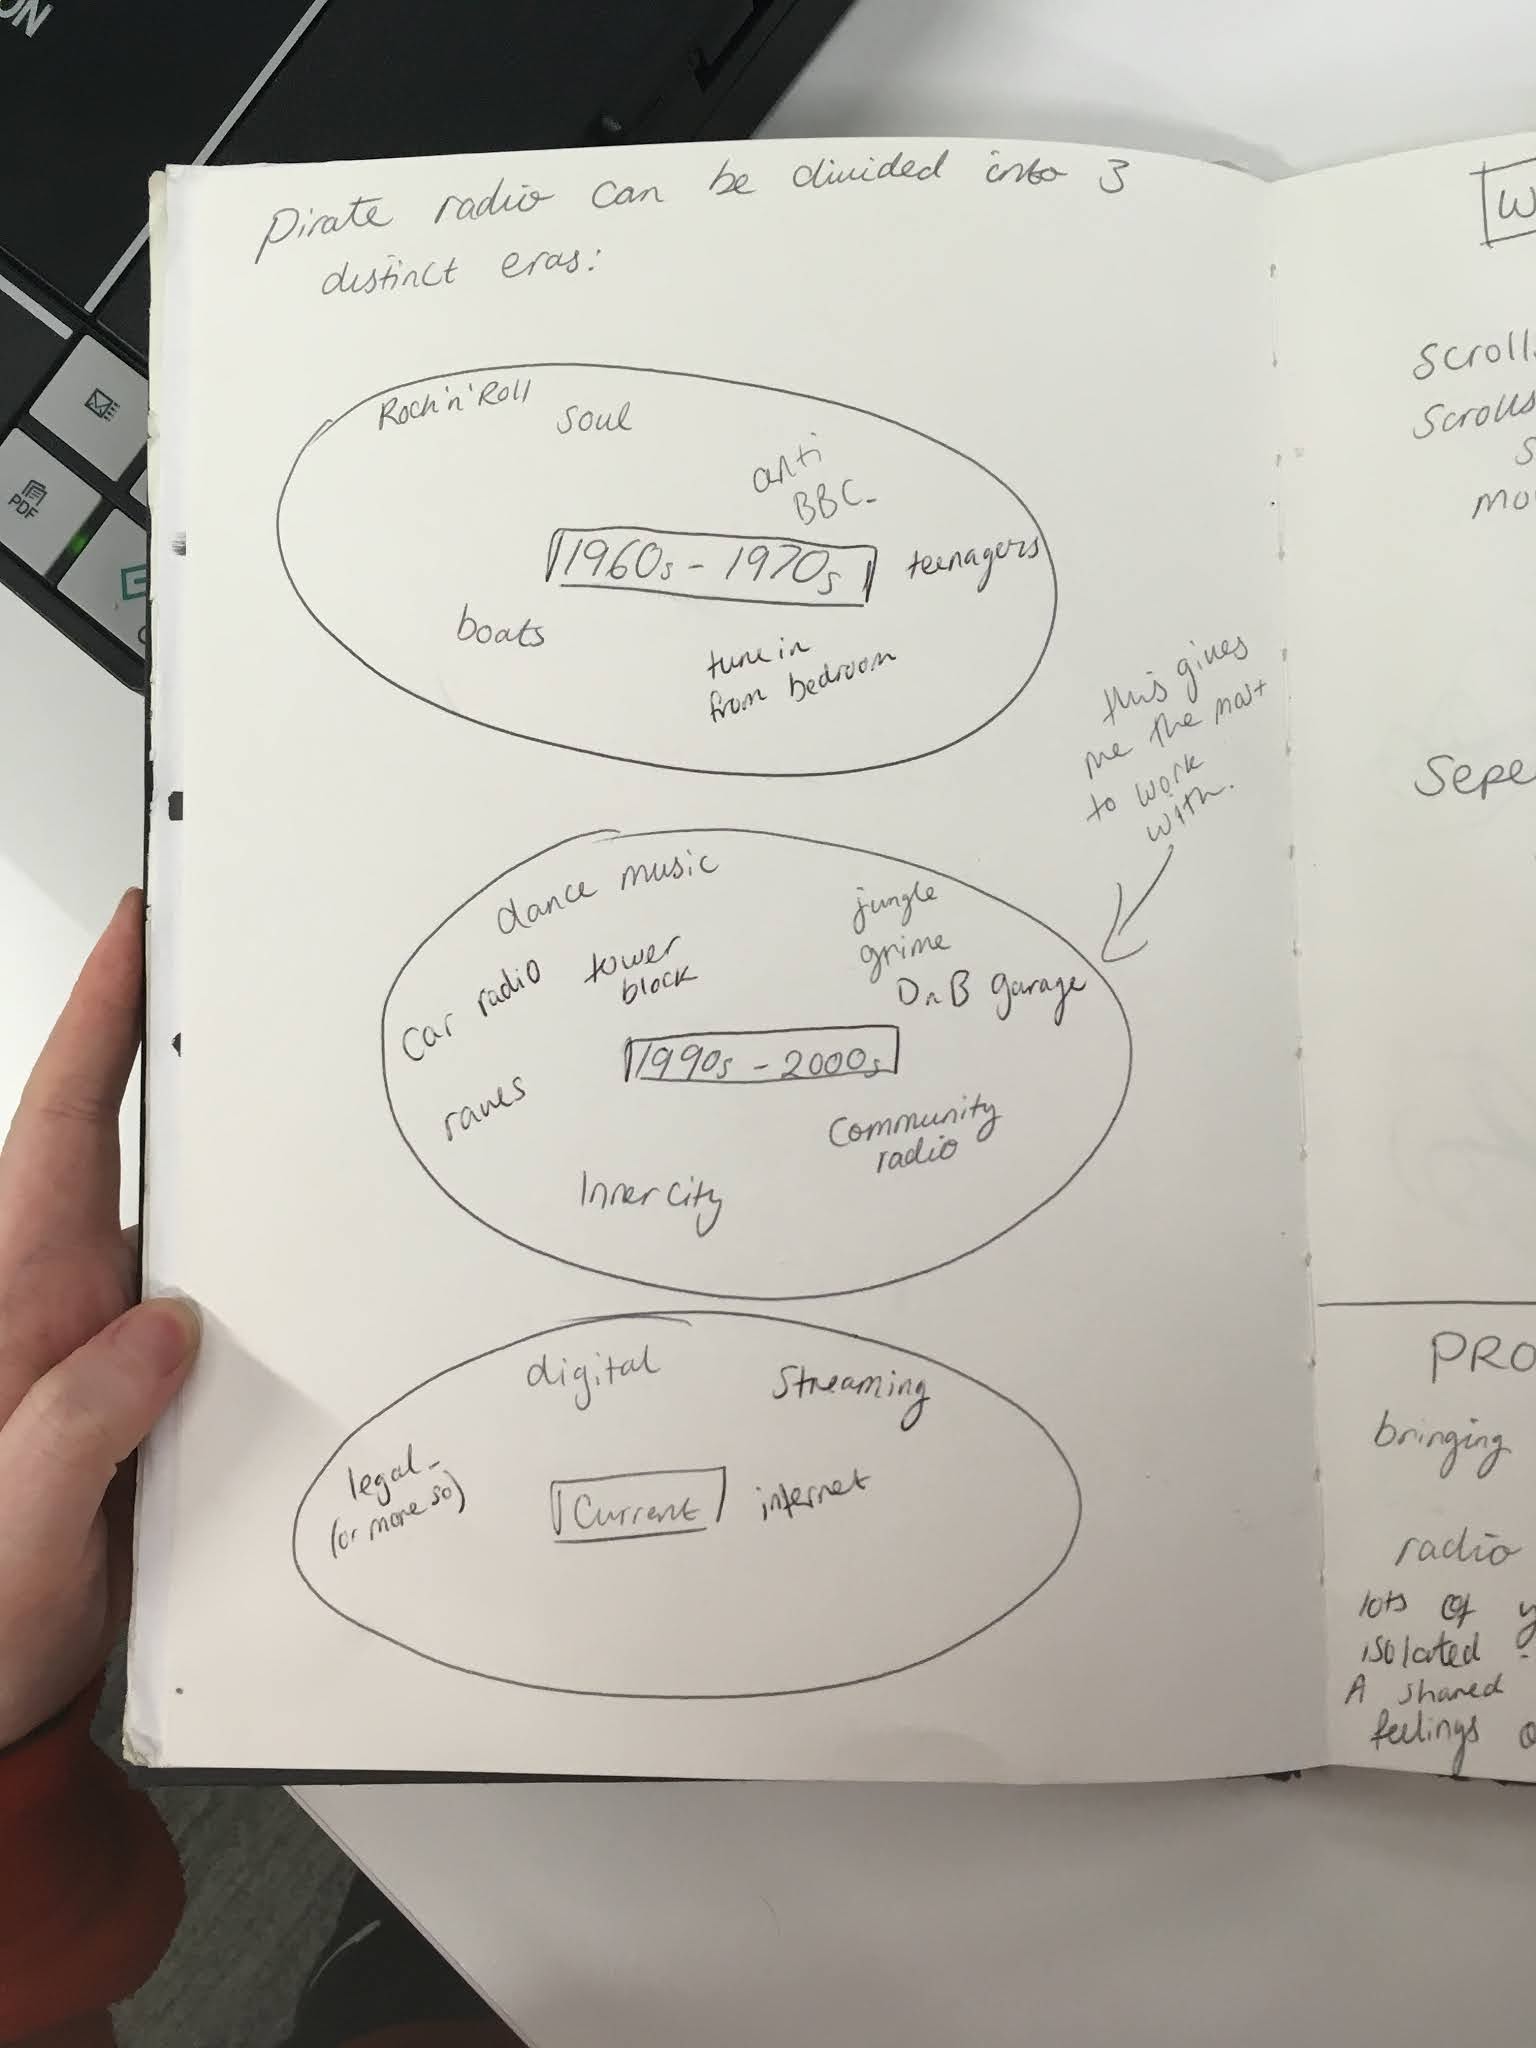 ON
PDF
Pirate radio can be divided into 3
distinct eras:
Rock'n'Roll
Soul
anti
BBC-
1960s - 1970s
teenagers
boats
tune in
from bedroom
this gives
me the most
to work
with.
dance music
jungle
grime
DnB garage
car radio
tower
block
1990s - 2000s
raves
Community
radio
Inner city
digital
Streaming
legal-
(or more so)
Current
internet
Scrolls
mo
Sepe
PRO
bringing
radio
lots of y
isolated -
A shared
feelings o